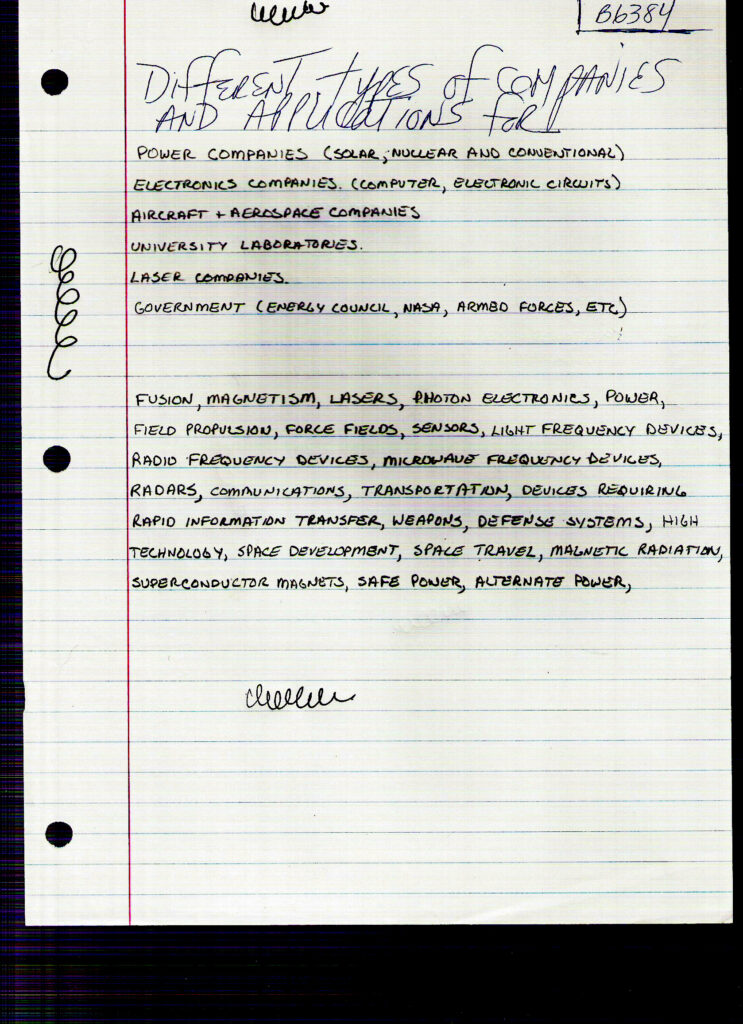 Bb384
DIFFERENT TYPES of COMPANIES
AND APPLICATIONS FOR
POWER COMPANIES (SOLAR, NUCLEAR AND CONVENTIONAL)
ELECTRONICS COMPANIES. (COMPUTER, ELECTRONIC CIRCUITS)
AIRCRAFT + AEROSPACE COMPANIES
UNIVERSITY LABORATORIES.
LASER COMPANIES.
GOVERNMENT (ENERGY COUNCIL, NASA, ARMED FORCES, ETC)
FUSION, MAGNETISM, LASERS, PHOTON ELECTRONICS, POWER,
FIELD PROPULSION, FORCE FIELDS, SENSORS, LIGHT FREQUENCY DEVICES,
RADIO FREQUENCY DEVICES, MICROWAVE FREQUENCY DEVICES,
RADARS, COMMUNICATIONS, TRANSPORTATION, DEVICES REQUIRING
RAPID INFORMATION TRANSFER, WEAPONS, DEFENSE SYSTEMS, HIGH
TECHNOLOGY, SPACE DEVELOPMENT, SPACE TRAVEL, MAGNETIC RADIATION,
SUPERCONDUCTOR MAGNETS, SAFE POWER, ALTERNATE POWER,